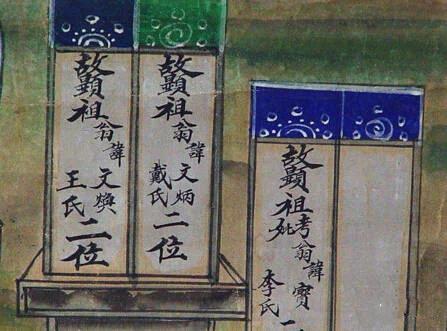 故顯祖考妣翁諱寳李氏
故顯祖翁諱文炳戴氏二位
故顯祖翁諱文煥王氏二位